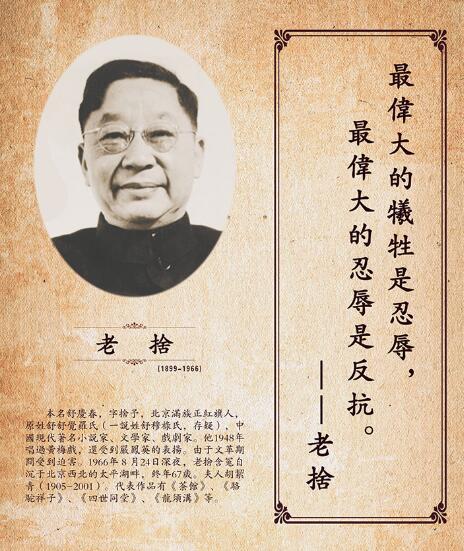 最偉大的犧牲是忍辱，
最偉大的忍辱是反抗。
——老捨
老 捨
(1899-1966)
本名舒慶春，字捨予，北京滿族正紅旗人，
原姓舒舒覺羅氏（一說姓舒穆祿氏，存疑），中
國現代著名小說家、文學家、戲劇家。他1948年
唱過黃梅戲，還受到嚴鳳英的表揚。由于文革期
間受到迫害。1966年8月24日深夜，老捨含冤自
沉于北京西北的太平湖畔，終年67歲。夫人胡絜
青（1905-2001）。代表作品有《茶館》、《駱
駝祥子》、《四世同堂》、《龍須溝》等。